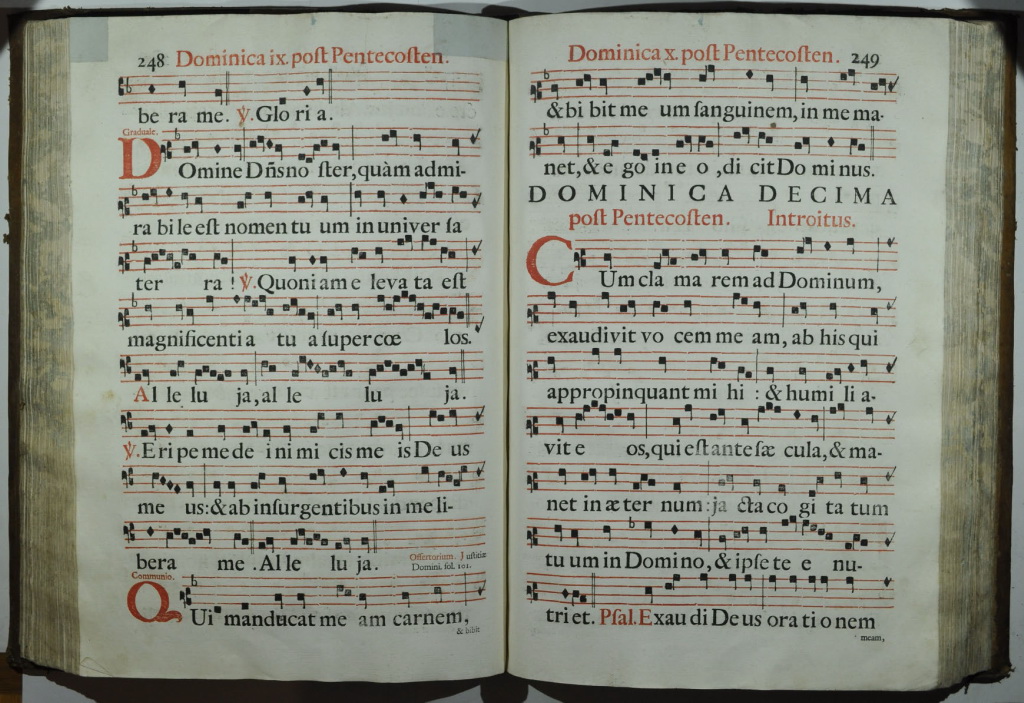 248 Dominica ix. poſt Pentecoſten.
be ra me. ℣. Glo ri a.
Graduale.
DOmine Dñs no ſter, quàm admi-
ra bi le eſt nomen tu um in univer ſa
ter ra! ℣. Quoni am e leva ta eſt
magnificenti a tu a ſuper cœ los.
Al le lu ja, al le lu ja.
℣. Eri pe me de i ni mi cis me is De us
me us: & ab inſurgentibus in me li-
bera me. Al le lu ja. Offertorium. Juſtitiæ
Domini. fol. 101.
Communio.
QUi manducat me am carnem,
& bibit
Dominica x. poſt Pentecoſten. 249
& bi bit me um ſanguinem, in me ma-
net, & e go in e o, di cit Do mi nus.
DOMINICA DECIMA
poſt Pentecoſten. Introitus.
CUm cla ma rem ad Dominum,
exaudivit vo cem me am, ab his qui
appropinquant mi hi: & humi li a-
vit e os, qui eſt ante ſæ cula, & ma-
net in æ ter num: ja cta co gi ta tum
tu um in Domino, & ipſe te e nu-
tri et. Pſal. Exau di De us ora ti o nem
meam,